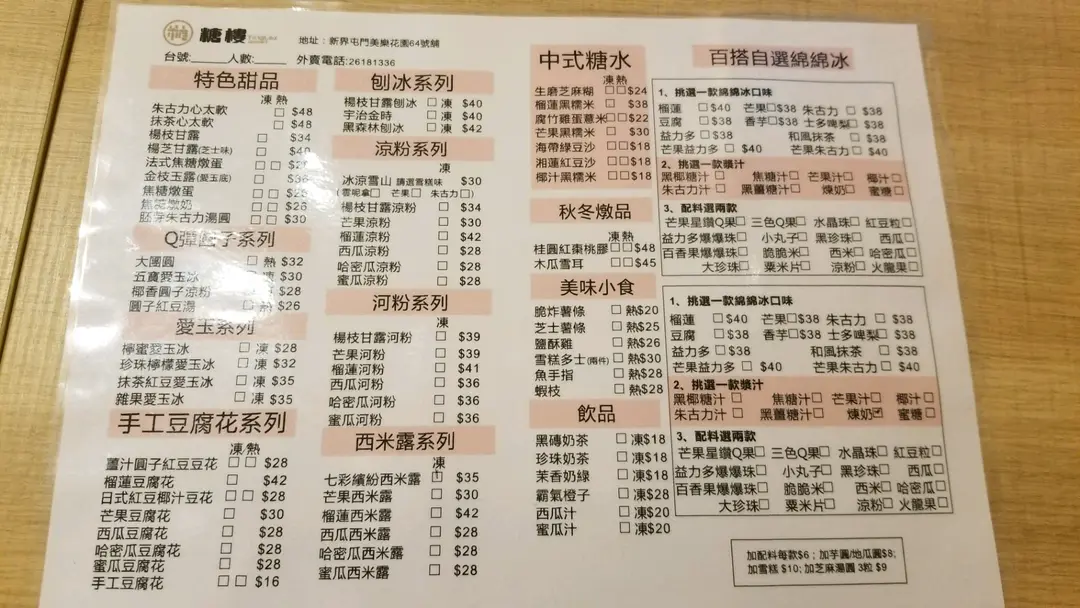 糖樓
地址：新界屯門美樂花園64號舖
台號:______人數:______ 外賣電話:26181336
特色甜品
凍 熱
朱古力心太軟 □ $48
抹茶心太軟 □ $48
楊枝甘露 □ $34
楊芝甘露(芝士味) □
法式焦糖燉蛋 □ □
金枝玉露(愛玉底) □
焦糖燉蛋 □ □
□ □ $26
胚芽朱古力湯圓 □ □ $30
Q彈圓子系列
大團圓 □ 熱 $32
五寶愛玉冰 □ 凍 $30
椰香圓子涼粉 □ $28
圓子紅豆湯 □ 熱 $26
愛玉系列
檸蜜愛玉冰 □ 凍 $28
珍珠檸檬愛玉冰 □ 凍 $32
抹茶紅豆愛玉冰 □ 凍 $35
雜果愛玉冰 □ 凍 $35
手工豆腐花系列
凍/熱
薑汁圓子紅豆豆花 □ □ $28
榴蓮豆腐花 □ $42
日式紅豆椰汁豆花 □ □ $28
芒果豆腐花 □ $30
西瓜豆腐花 □ $28
哈密瓜豆腐花 □ $28
蜜瓜豆腐花 □ $28
手工豆腐花 □ □ $16
刨冰系列
楊枝甘露刨冰 □ 凍 $40
宇治金時 □ 凍 $40
黑森林刨冰 □ 凍 $42
涼粉系列
凍
冰涼雪山 請選雪糕味 $30
(雲呢拿□ 芒果□ 朱古力□)
楊枝甘露涼粉 □ $34
芒果涼粉 □ $30
榴蓮涼粉 □ $42
西瓜涼粉 □ $28
哈密瓜涼粉 □ $28
蜜瓜涼粉 □ $28
河粉系列
凍
楊枝甘露河粉 □ $39
芒果河粉 □ $39
榴蓮河粉 □ $41
西瓜河粉 □ $36
哈密瓜河粉 □ $36
蜜瓜河粉 □ $36
西米露系列
凍
七彩繽紛西米露 □ $35
芒果西米露 □ $30
榴蓮西米露 □ $42
西瓜西米露 □ $28
哈密瓜西米露 □ $28
蜜瓜西米露 □ $28
中式糖水
凍熱
生磨芝麻糊 □□$24
榴蓮黑糯米 □ $38
腐竹雞蛋薏米□□$22
芒果黑糯米 □ $30
海帶綠豆沙 □□$18
湘蓮紅豆沙 □□$18
椰汁黑糯米 □□$18
秋冬燉品
凍熱
桂圓紅棗桃膠□□$48
木瓜雪耳 □□$45
美味小食
脆炸薯條 □ 熱$20
芝士薯條 □ 熱$25
鹽酥雞 □ 熱$26
雪糕多士(兩件) □ 熱$30
魚手指 □ 熱$28
蝦枝 □ 熱$28
飲品
黑磚奶茶 □ 凍$18
珍珠奶茶 □ 凍$18
茉香奶綠 □ 凍$18
霸氣橙子 □ 凍$28
西瓜汁 □ 凍$20
蜜瓜汁 □ 凍$20
百搭自選綿綿冰
1、挑選一款綿綿冰口味
榴蓮 □$40 芒果□$38 朱古力 □ $38
豆腐 □$38 香芋□$38 士多啤梨□ $38
益力多 □ $38 和風抹茶 □ $38
芒果益力多 □ $40 芒果朱古力 □ $40
2、挑選一款漿汁
黑椰糖汁□ 焦糖汁□ 芒果汁□ 椰汁□
朱古力汁□ 黑薑糖汁□ 煉奶□ 蜜糖□
3、配料選兩款
芒果星鑽Q果□ 三色Q果□ 水晶珠□ 紅豆粒□
益力多爆爆珠□ 小丸子□ 黑珍珠□ 西瓜□
百香果爆爆珠□ 脆脆米□ 西米□ 哈密瓜□
大珍珠□ 粟米片□ 涼粉□ 火龍果□
1、挑選一款綿綿冰口味
榴蓮 □$40 芒果□$38 朱古力 □ $38
豆腐 □$38 香芋□$38 士多啤梨□ $38
益力多 □ $38 和風抹茶 □ $38
芒果益力多 □ $40 芒果朱古力 □ $40
2、挑選一款漿汁
黑椰糖汁□ 焦糖汁□ 芒果汁□ 椰汁□
朱古力汁□ 黑薑糖汁□ 煉奶☑ 蜜糖□
3、配料選兩款
芒果星鑽Q果□ 三色Q果□ 水晶珠□ 紅豆粒□
益力多爆爆珠□ 小丸子□ 黑珍珠□ 西瓜□
百香果爆爆珠□ 脆脆米□ 西米□ 哈密瓜□
大珍珠□ 粟米片□ 涼粉□ 火龍果□
加配料每款$6；加芋圓/地瓜圓$8;
加雪糕 $10; 加芝麻湯圓 3粒 $9